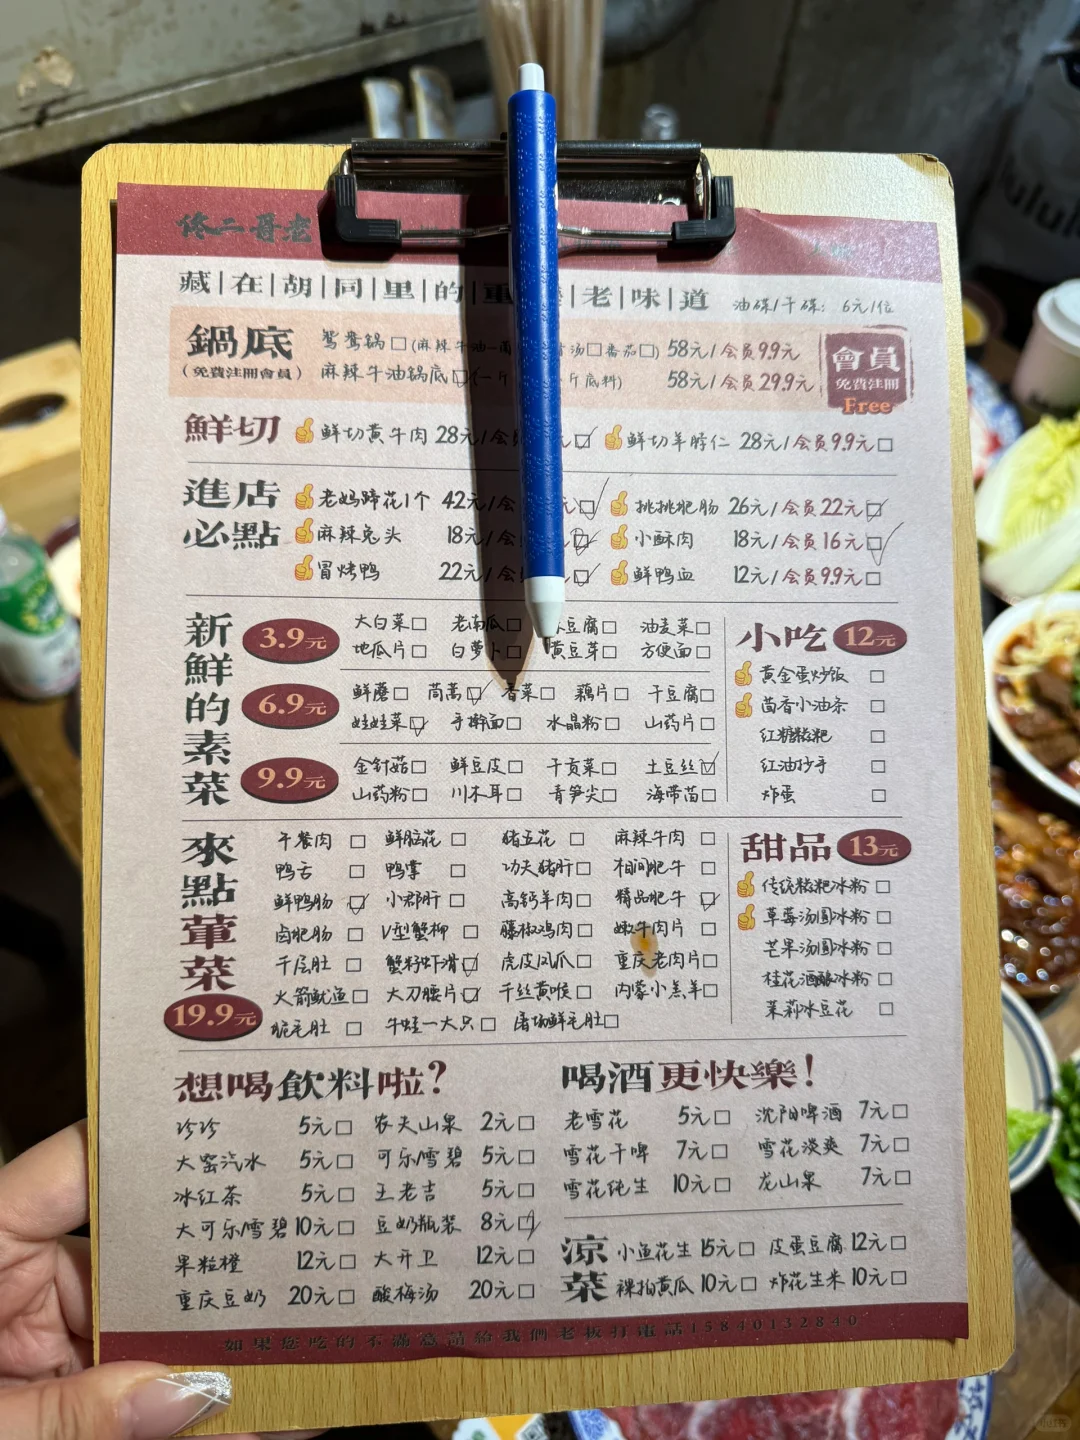 佟二哥老
藏|在|胡|同|里|的|重 老|味|道 油碟/干碟: 6元/位
鍋底 鸳鸯锅□(麻辣牛油 汤□番茄□) 58元/会员9.9元
(免費注冊會員) 麻辣牛油锅底□(一斤 斤底料) 58元/会员29.9元
會員
免費注冊
Free
鮮切 鲜切黄牛肉 28元/会 □ 鲜切羊脖仁 28元/会员9.9元□
進店必點
老妈蹄花1个 42元/会 元□ 挑挑肥肠 26元/会员22元□
麻辣兔头 18元/会 □ 小酥肉 18元/会员16元□
冒烤鸭 22元/会 □ 鲜鸭血 12元/会员9.9元□
新鮮的素菜
3.9元
大白菜□ 老南瓜□ 豆腐□ 油麦菜□
地瓜片□ 白萝卜□ 黄豆芽□ 方便面□
6.9元
鲜蘑□ 茼蒿□ 香菜□ 藕片□ 干豆腐□
娃娃菜□ 手擀面□ 水晶粉□ 山药片□
9.9元
金针菇□ 鲜豆皮□ 干贡菜□ 土豆丝□
山药粉□ 川木耳□ 青笋尖□ 海带苗□
小吃 12元
黄金蛋炒饭 □
茴香小油条 □
红糖糍粑 □
红油抄手 □
炸蛋 □
來點葷菜
19.9元
午餐肉 □ 鲜脑花 □ 猪五花 □ 麻辣牛肉 □
鸭舌 □ 鸭掌 □ 功夫猪肝□ 相间肥牛 □
鲜鸭肠 □ 小郡肝 □ 高钙羊肉□ 精品肥牛 □
卤肥肠 □ V型蟹柳 □ 藤椒鸡肉□ 嫩牛肉片 □
千层肚 □ 蟹籽虾滑□ 虎皮凤爪□ 重庆老肉片□
火箭鱿鱼□ 大刀腰片□ 千丝黄喉□ 内蒙小羔羊□
脆毛肚 □ 牛蛙一大只 □ 屠场鲜毛肚□
甜品 13元
传统糍粑冰粉 □
草莓汤圆冰粉 □
芒果汤圆冰粉 □
桂花酒酿冰粉 □
茉莉冰豆花 □
想喝飲料啦?
珍珍 5元□ 农夫山泉 2元□
大窑汽水 5元□ 可乐/雪碧 5元□
冰红茶 5元□ 王老吉 5元□
大可乐/雪碧 10元□ 豆奶瓶装 8元□
果粒橙 12元□ 大开卫 12元□
重庆豆奶 20元□ 酸梅汤 20元□
喝酒更快樂!
老雪花 5元□ 沈阳啤酒 7元□
雪花干啤 7元□ 雪花淡爽 7元□
雪花纯生 10元□ 龙山泉 7元□
涼菜
小鱼花生 15元□ 皮蛋豆腐 12元□
裸拍黄瓜 10元□ 炸花生米 10元□
如果您吃的不滿意請給我們老板打電話15840132840